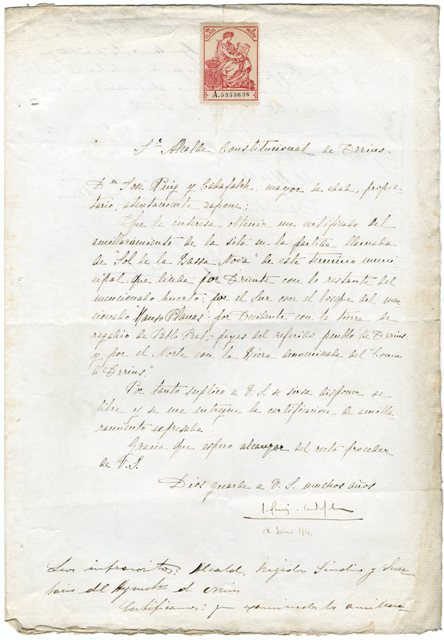 A.5353638
Sr. Alcalde Constitucional de Terrius.
Dn. José Puig y Cadafalch, mayor de edad, propie
tario, atentamente expone:
Que le interesa obtener un certificado del
amillaramiento de la sita en la partida llamada
de "Sol de la Bassa Nova" de este término muni
cipal, que linda por Oriente con lo restante del
mencionado huerto; por el Sur con el bosque del men
cionado Manso Planas; por Occidente con la tierra de
regadio de Pablo Pral, payes del referido pueblo de Terrius
y por el Norte con la Riera denominada del
de Terrius"
Por tanto suplico a V.S. se sirva disponer se
libre y se me entregue la certificacion de amilla
ramiento expresada
Gracia que espero alcanzar del recto proceder
de V.S.
Dios guarde a V.S. muchos años
J. Puig i Cadafalch
Los infrascritos: Alcalde, Regidor Sindico y Secre
tario del Aymto. de
Certificamos: que examinados los amillara